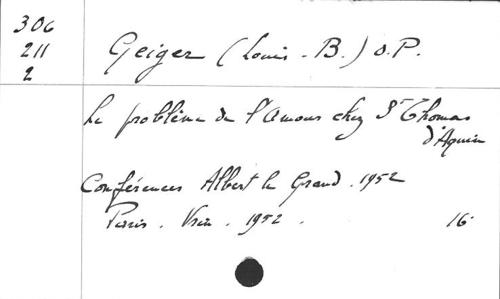 306
211
2
Geiger (Louis-B.) O.P.
Le problème de l'Amour chez St Thomas
d'Aquin
Conférences Albert le Grand. 1952
Paris. Vrin. 1952. 16